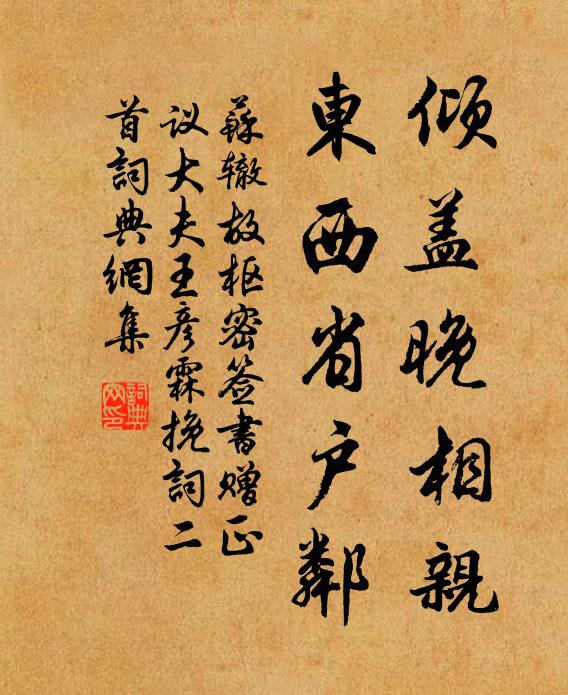 傾盖晚相親
東西省户鄰
蘇辙故枢密签書赠正
议大夫王彦霖挽詞二
首詞典網集
詞典
网印